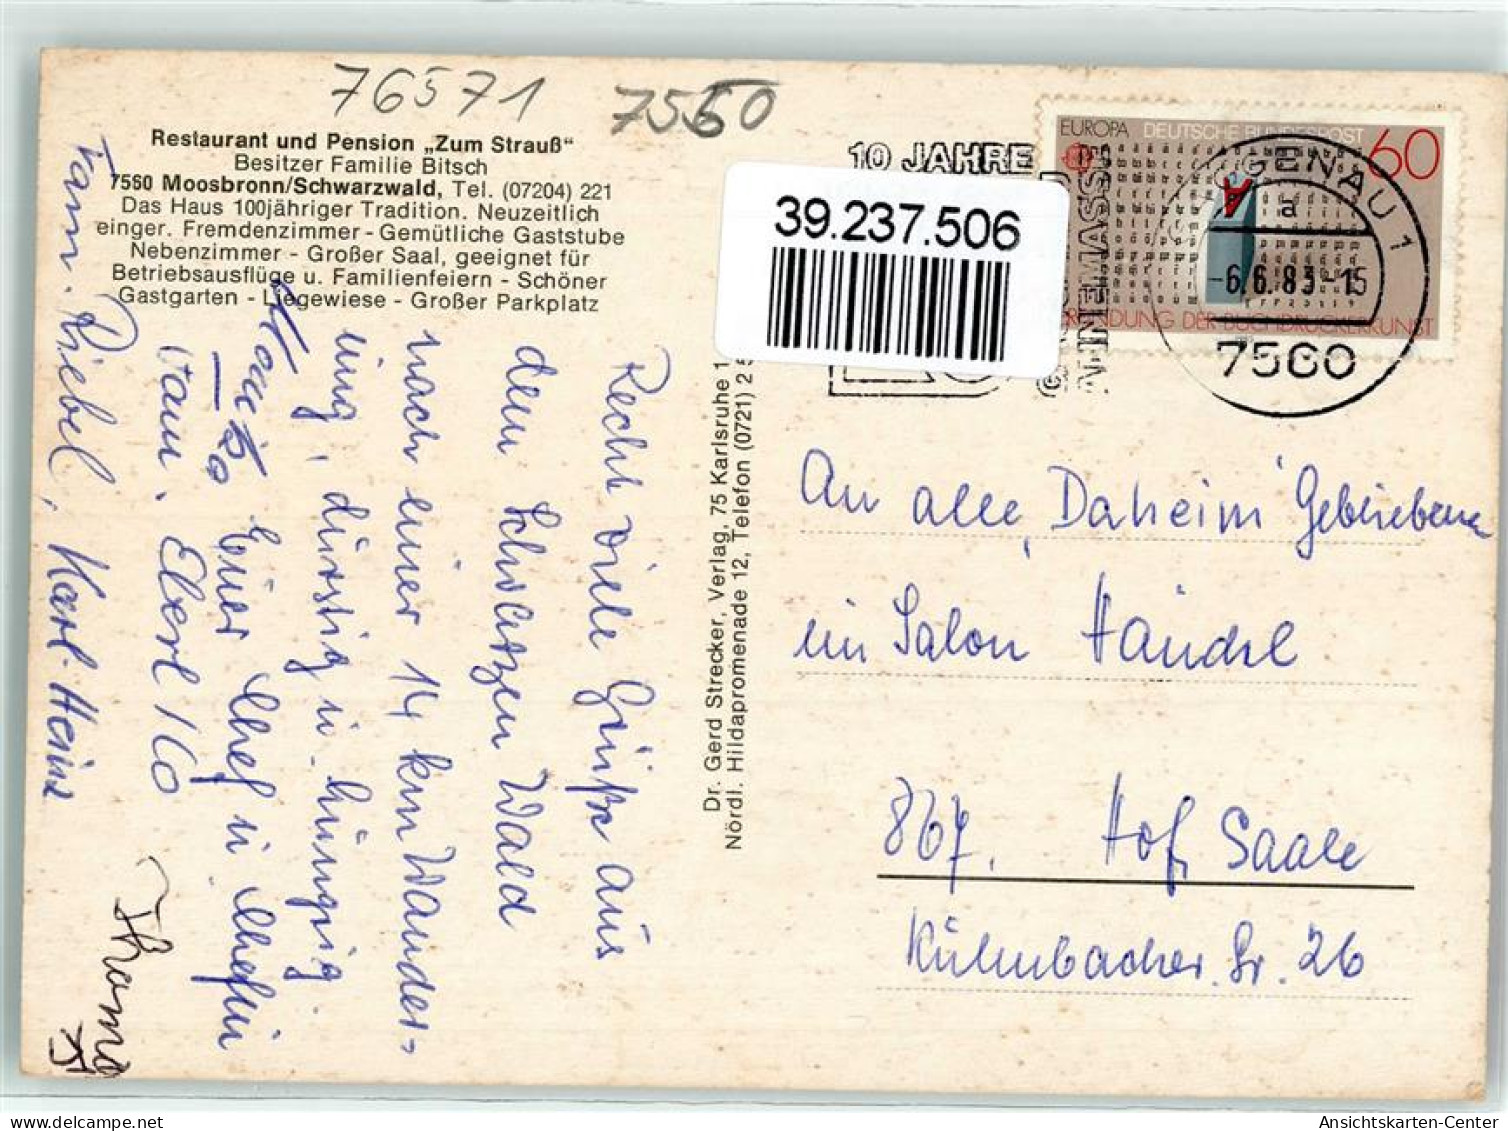 76571
7560
Restaurant und Pension „Zum Strauß“
Besitzer Familie Bitsch
7560 Moosbronn/Schwarzwald, Tel. (07204) 221
Das Haus 100jähriger Tradition. Neuzeitlich
einger. Fremdenzimmer - Gemütliche Gaststube
Nebenzimmer - Großer Saal, geeignet für
Betriebsausflüge u. Familienfeiern - Schöner
Gastgarten - Liegewiese - Großer Parkplatz
Recht viele Grüße aus
dem Schwarzen Wald
nach einer 14 km Wander-
ung, durstig u. hungrig.
Euer Chef u Chefin
Fam. Eberl
Fam. Riebel, Karl-Heinz
Thomas
Dr. Gerd Strecker, Verlag, 75 Karlsruhe 1
Nördl. Hildapromenade 12, Telefon (0721) 2 5
39.237.506
10 JAHRE
EUROPA DEUTSCHE BUNDESPOST 60
DER BUCHDRUCKERKUNST
GENAU 1
a
-6.6.83-15
7560
An alle, Daheim Gebliebenen
im Salon Händel
867. Hof, Saale
Kulmbacher Str. 26
www.delcampe.net
Ansichtskarten-Center